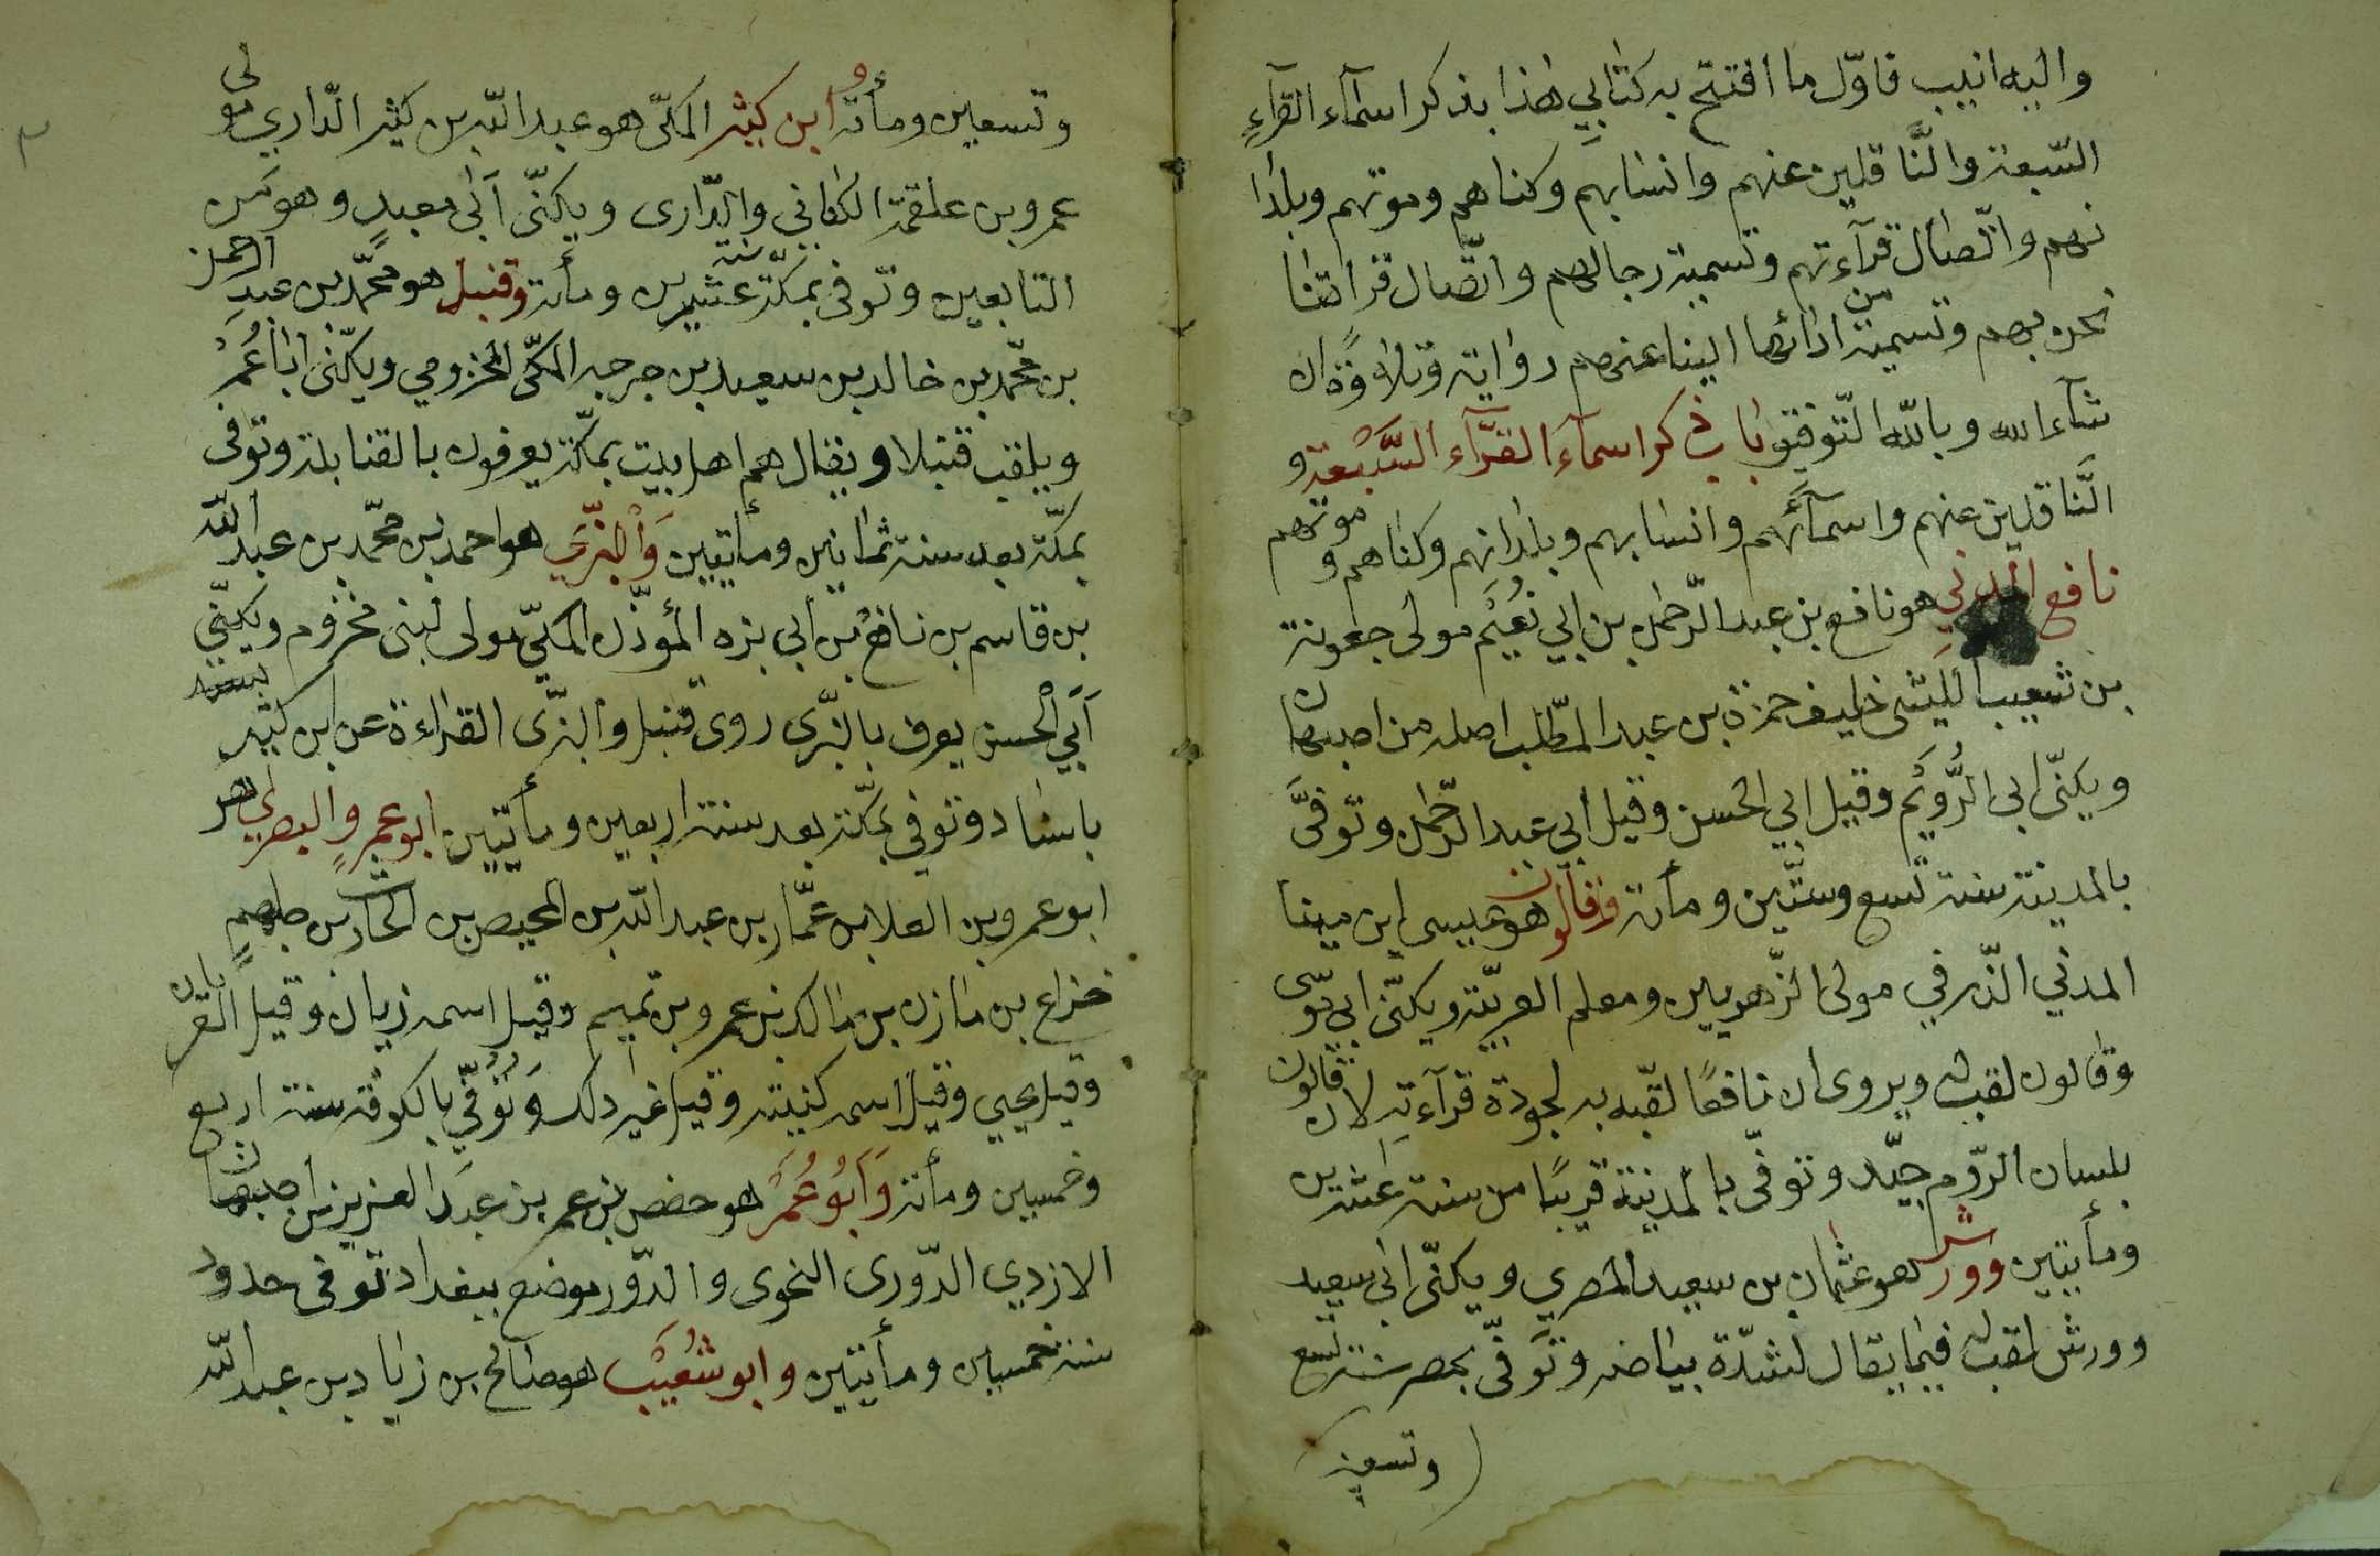 واليه انيب فاوّل ما افتتح به كتابي هذا بذكر اسمآء القرآء
السّبعة والنَّاقلين عنهم وانسابهم وكناهم وموتهم وبلدا
نهم واتّصال قرآءتهم وتسمية رجالهم واتّصال قراتنا
نحن بهم وتسمية من ادائها الينا عنهم رواية وتلاوةً ان
شآء الله وبالله التّوفيق باب ذكر اسمآء القرّآء السَّبْعة و
النَّاقلين عنهم واسمآئهم وانسابهم وبلدانهم وكناهم و موتهم
نافع المدني هو نافع بن عبد الرّحمن بن ابي نُعَيْم مولى جعونة
بن شعيب الليثى خليف حمزة بن عبد المطّلب اصله من اصبهان
ويكنّى ابى الرُّوَيْم وقيل ابي الحسن وقيل ابى عبد الرّحمن وتوفىَّ
بالمدينة سنة تسع وستّين ومأته وقالون هو عيسى ابن مينا
المدني الزّرقي مولى الزّهريين ومعلم العربيّة ويكنّى ابى موسى
وقالون لقب له ويروى ان نافعًا لقّبه به لجودة قرآءته لان قالون
بلسان الرّوم جيّد وتوفّى بالمدينة قريبًا من سنة عشرين
ومأيتين وورش هو عثمان بن سعيد المصري ويكنّى ابى سعيد
وورش لقب له فيما يقال لشدّة بياضه وتوفّى بمصر سنة تسع
وتسعين
٣
وتسعين ومأته وابن كثير المكىّ هو عبد الله بن كثير الدّاري مولى
عمرو بن علقمة الكناني والدّارى ويكنّى ابى معبدٍ وهو من
التابعين وتوفى بمكّة سنة عشرين ومأته وقنبل هو محمّد بن عبد الرحمن
بن محّمد بن خالد بن سعيد بن جرجه المكّى المخزومي ويكنّى ابا عُمَر
ويلقب قنبلا ويقال هم اهل بيت بمكّة يعرفون بالقنابلة وتوفى
بمكّة بعد سنة ثمانين ومأتيين وَالْبَزّي هو احمد بن محّمد بن عبد الله
بن قاسم بن نافع بن ابى بزه المؤذّن المكيّ مولى لبنى مخزوم ويكنّى
اَبي الحسن يعرف بالبزّى روى قنبل والبزّى القراءة عن ابن كثير
باسناد وتوفي بمكّة بعد سنة اربعين ومأتيين ابو عمروٍ البصري هو
ابو عمرو بن العلا بن عمّار بن عبد الله بن الحيصين بن الحارث بن جلهم
خزاع بن مازن بن مالك بن عمرو بن تميم وقيل اسمه زبان وقيل العريان
وقيل يحيي وقيل اسمه كنيته وقيل غير ذلك وَتُوُفّي بالكوفة سنة اربع
وخمسين ومأته وَاَبُو عُمَر هو حفص بن عمر بن عبد العزيز بن اصبهان
الازدي الدّورى النحوى والدّور موضع ببغداد توفى حدود
سنة خمسين ومأتيين وابو شُعَيْب هو صالح بن زياد بن عبد الله